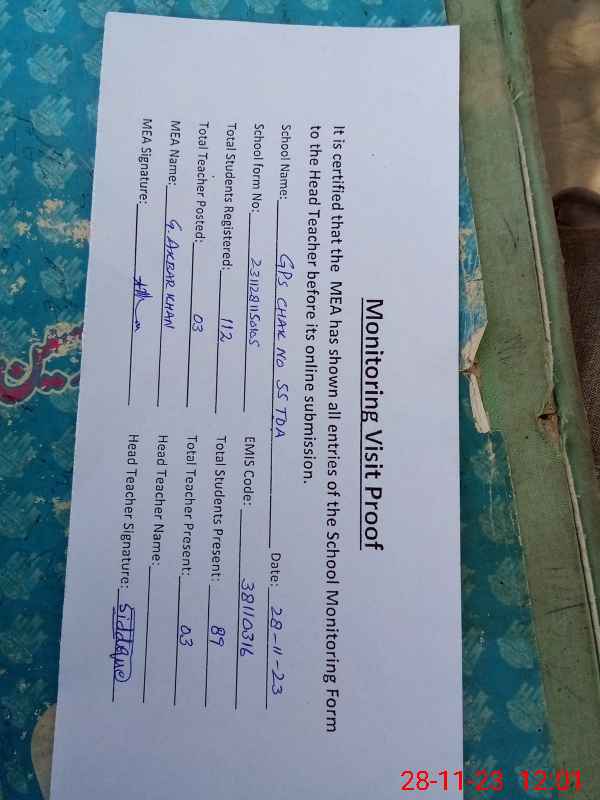 Monitoring Visit Proof
It is certified that the MEA has shown all entries of the School Monitoring Form
to the Head Teacher before its online submission.
School Name: GPS CHAK NO 55 TDA Date: 28-11-23
School form No: 2311281150105 EMIS Code: 38110316
Total Students Registered: 112 Total Students Present: 89
Total Teacher Posted: 03 Total Teacher Present: 03
MEA Name: G. AKBAR KHAN Head Teacher Name:
MEA Signature: Head Teacher Signature:
28-11-23 12:01